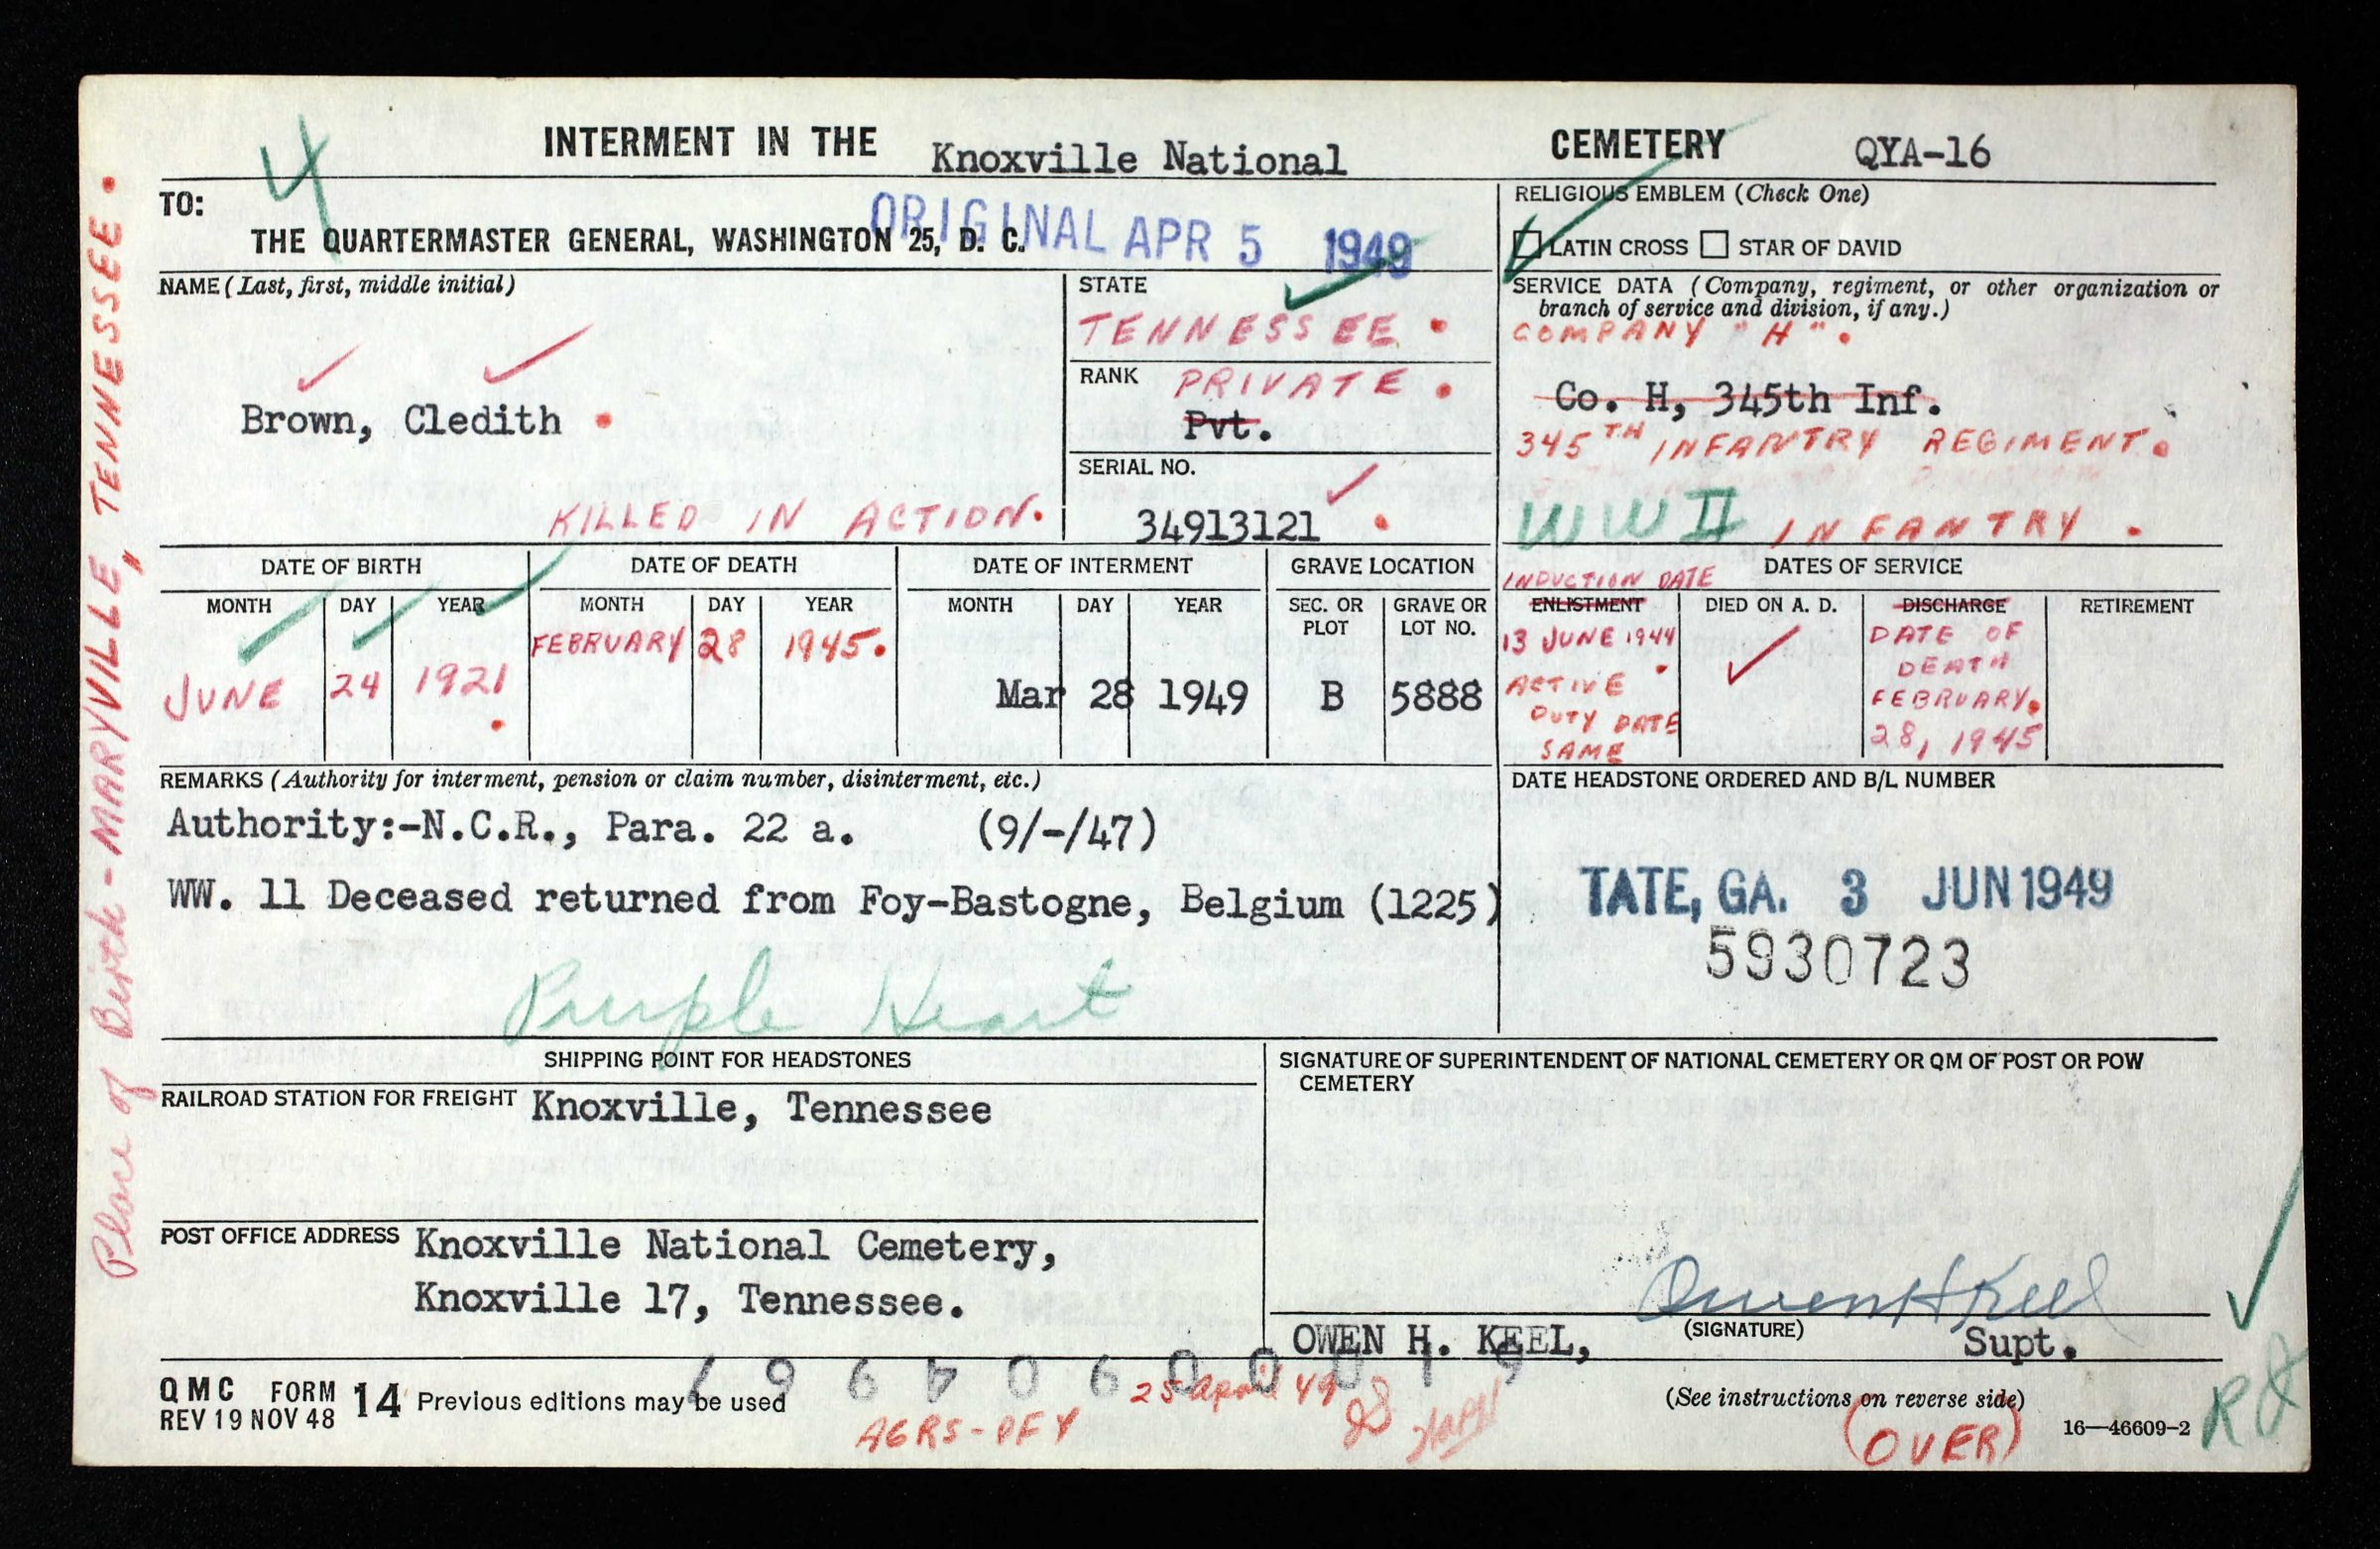 INTERMENT IN THE Knoxville National CEMETERY QYA-16
TO:
THE QUARTERMASTER GENERAL, WASHINGTON 25, D. C.
ORIGINAL APR 5 1949
RELIGIOUS EMBLEM (Check One)
LATIN CROSS STAR OF DAVID
NAME (Last, first, middle initial)
Brown, Cledith
KILLED IN ACTION.
STATE
TENNESSEE.
RANK PRIVATE.
Pvt.
SERIAL NO.
34913121
SERVICE DATA (Company, regiment, or other organization or
branch of service and division, if any.)
COMPANY "H".
Co. H, 345th Inf.
345TH INFANTRY REGIMENT.
WW II INFANTRY.
DATE OF BIRTH
MONTH DAY YEAR
JUNE 24 1921.
DATE OF DEATH
MONTH DAY YEAR
FEBRUARY 28 1945.
DATE OF INTERMENT
MONTH DAY YEAR
Mar 28 1949
GRAVE LOCATION
SEC. OR PLOT GRAVE OR LOT NO.
B 5888
DATES OF SERVICE
INDUCTION DATE
ENLISTMENT DIED ON A. D. DISCHARGE RETIREMENT
13 JUNE 1944.
ACTIVE
DUTY DATE
SAME
DATE OF
DEATH
FEBRUARY.
28, 1945
REMARKS (Authority for interment, pension or claim number, disinterment, etc.)
Authority:-N.C.R., Para. 22 a. (9/-/47)
WW. 11 Deceased returned from Foy-Bastogne, Belgium (1225)
Purple Heart
DATE HEADSTONE ORDERED AND B/L NUMBER
TATE, GA. 3 JUN 1949
5930723
SHIPPING POINT FOR HEADSTONES
RAILROAD STATION FOR FREIGHT Knoxville, Tennessee
POST OFFICE ADDRESS Knoxville National Cemetery,
Knoxville 17, Tennessee.
SIGNATURE OF SUPERINTENDENT OF NATIONAL CEMETERY OR QM OF POST OR POW
CEMETERY
Owen H Keel
OWEN H. KEEL, (SIGNATURE) Supt.
QMC FORM 14 Previous editions may be used
REV 19 NOV 48
25 April 49
AGRS-
(See instructions on reverse side)
(OVER)
16—46609-2
Place of Birth - MARYVILLE, TENNESSEE.